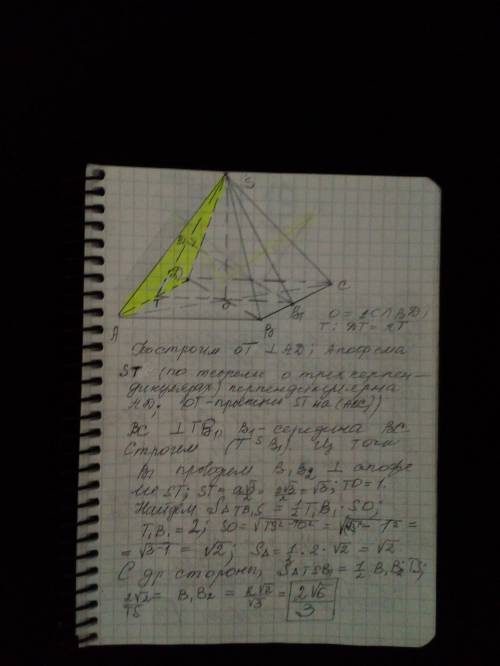 S
A
B
B₁
C
T
O
O = AC∩BD;
T: AT = DT
Построим OT ⊥ AD; Апофема
ST (по теореме о трех перпен-
дикулярах) перпендикулярна
AD. OT - проекция ST на (ABC))
BC ⊥ TB₁, B₁ - середина BC.
Строим (TSB₁). Из точки
B₁ проведем B₁B₂ ⊥ апофе
ме ST; ST = a√3/2 = 2√3/2 = √3; TO = 1.
Найдем S△TB₁S = 1/2 T₁B₁ · SO;
T₁B₁ = 2; SO = √TS² - TO² = √√3² - 1² =
= √3-1 = √2; S△ = 1/2 · 2 · √2 = √2
С др стороны, S△TSB₁ = 1/2 B₁B₂ · TS;
2√2/TS = B₁B₂ = 2√2/√3 = 2√6/3